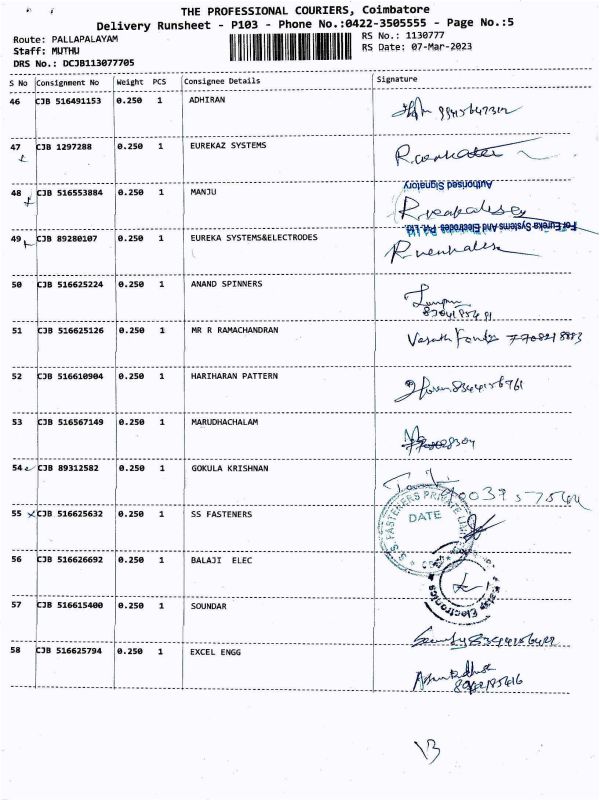 THE PROFESSIONAL COURIERS, Coimbatore
Delivery Runsheet - P103 - Phone No.:0422-3505555 - Page No.:5
Route: PALLAPALAYAM
Staff: MUTHU
DRS No.: DCJB113077705
RS No.: 1130777
RS Date: 07-Mar-2023
S No Consignment No Weight PCS Consignee Details Signature
46 CJB 516491153 0.250 1 ADHIRAN
47 CJB 1297288 0.250 1 EUREKAZ SYSTEMS
Authorised Signatory
48 CJB 516553884 0.250 1 MANJU
For Eureka Systems And Electrodes Pvt. Ltd.
49 CJB 89280107 0.250 1 EUREKA SYSTEMS&ELECTRODES
50 CJB 516625224 0.250 1 ANAND SPINNERS
51 CJB 516625126 0.250 1 MR R RAMACHANDRAN
52 CJB 516610904 0.250 1 HARIHARAN PATTERN
53 CJB 516567149 0.250 1 MARUDHACHALAM
54 CJB 89312582 0.250 1 GOKULA KRISHNAN
55 CJB 516625632 0.250 1 SS FASTENERS
S.S. FASTENERS PRIVATE
DATE
56 CJB 516626692 0.250 1 BALAJI ELEC
Electronics
57 CJB 516615400 0.250 1 SOUNDAR
58 CJB 516625794 0.250 1 EXCEL ENGG
13